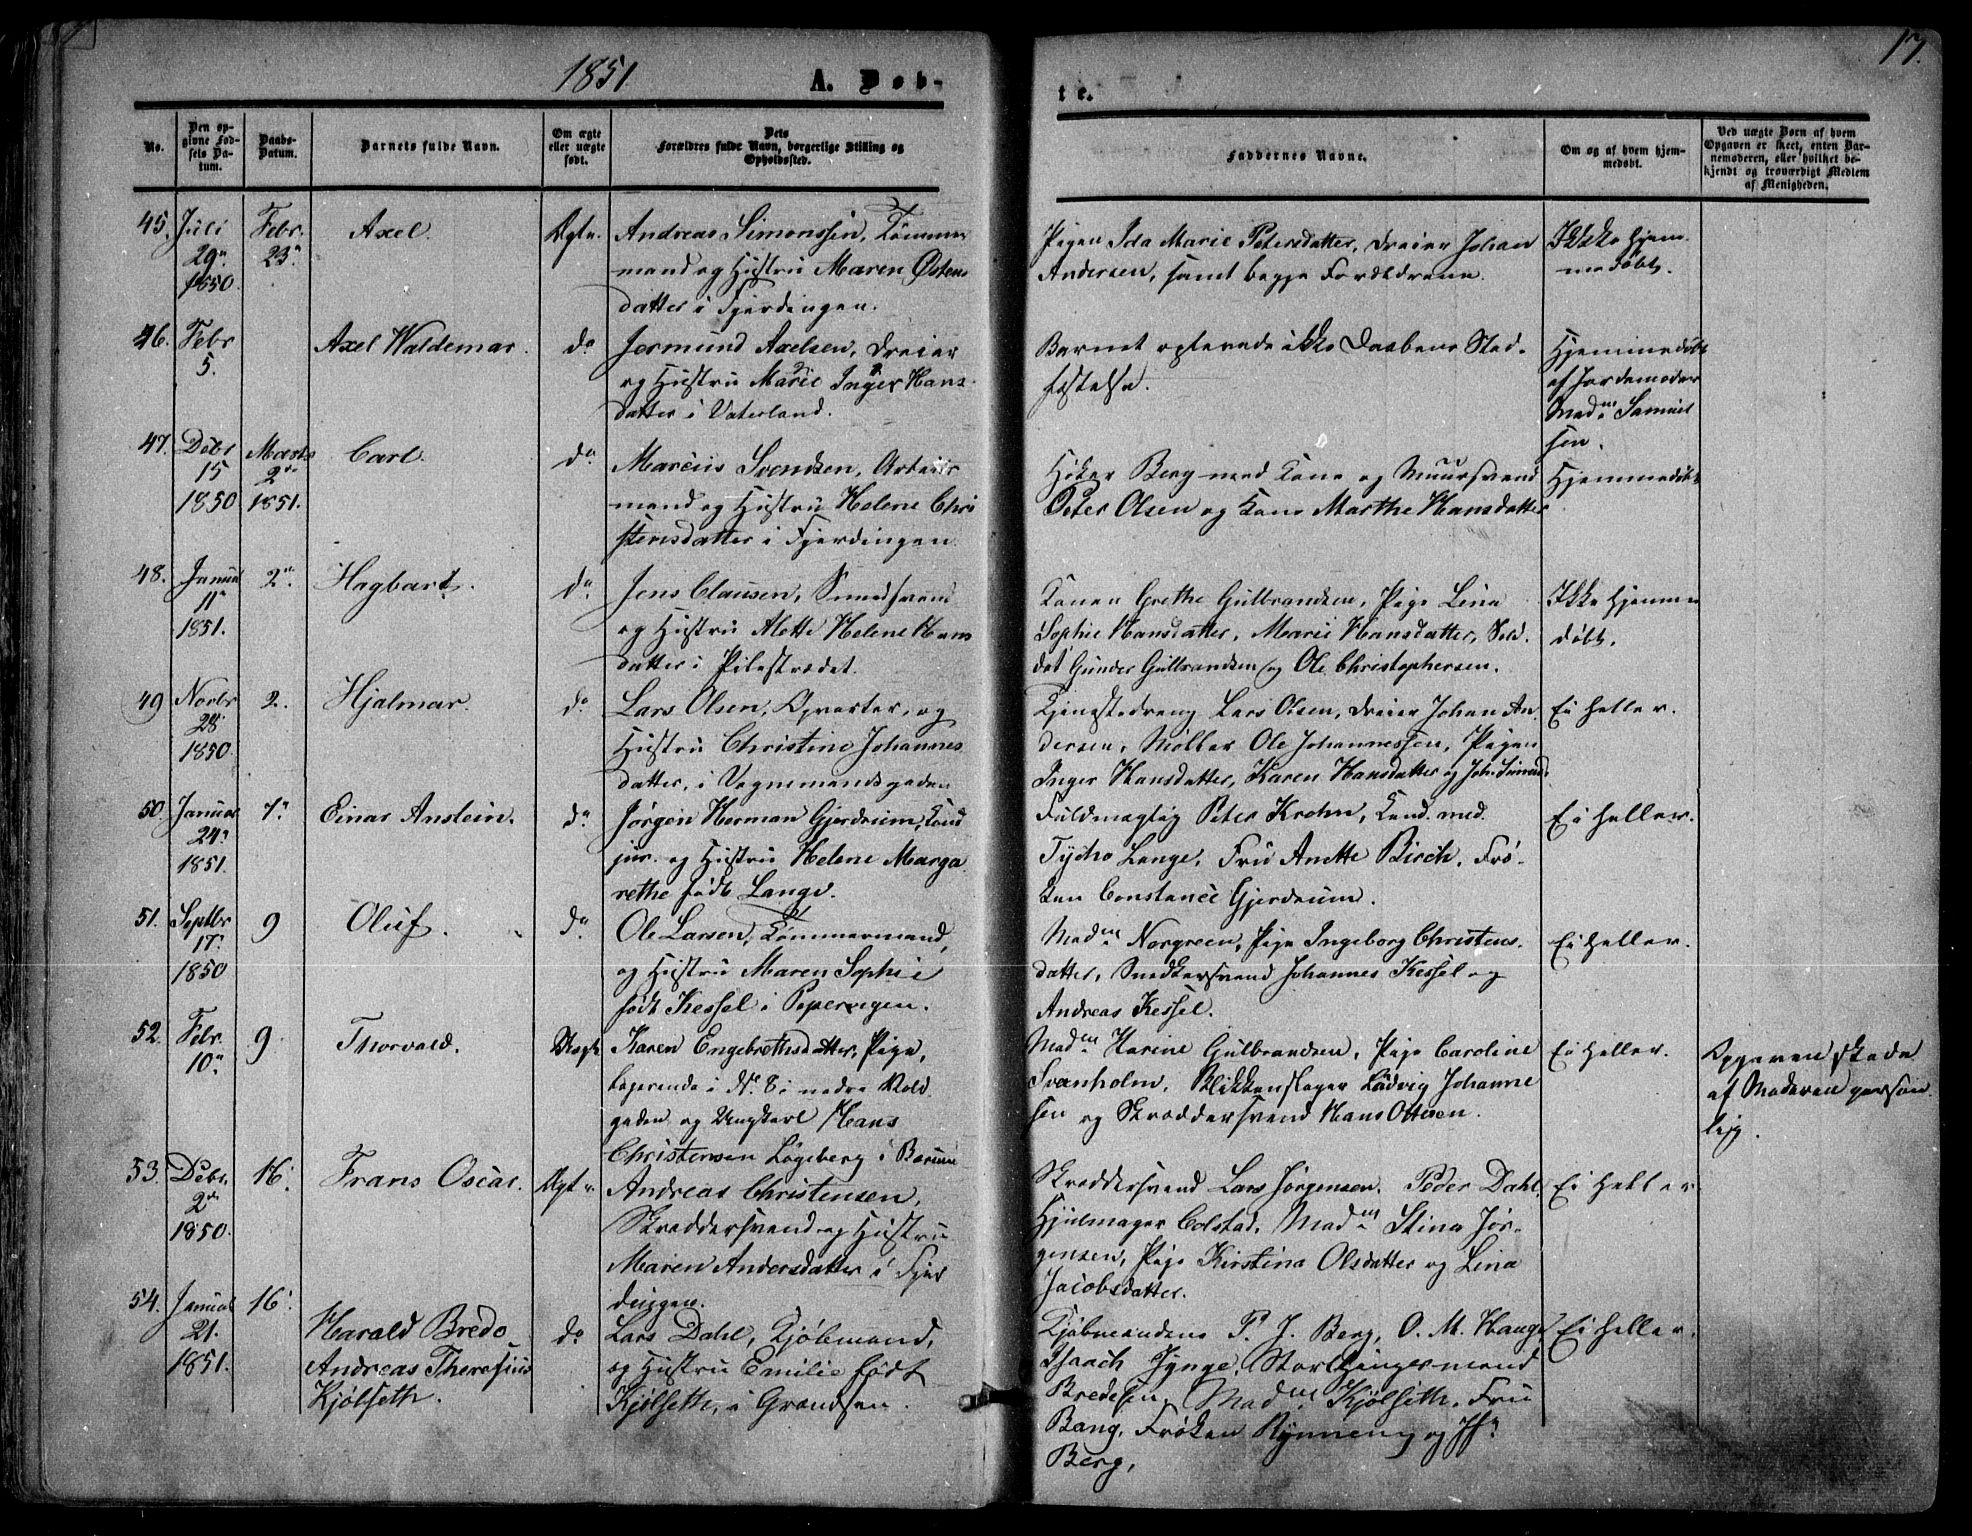 1851. A. Døb-
te.
17.
No.
Den op-
givne Fød-
sels Da-
tum.
Daabs-
Datum.
Barnets fulde Navn.
Om ægte
eller uægte
født.
Dets
Forældres fulde Navn, borgerlige Stilling og
Opholdssted.
Faddernes Navne.
Om og af hvem hjem-
medøbt.
Ved uægte Børn af hvem
Opgaven er skeet, enten Bar-
nemoderen, eller hvilket be-
kjendt og troværdigt Medlem
af Menigheden.
45. Juli 29n 1850. Febr. 23n Axel. Ægte.
Andreas Simonssen, Tømmer
mand og Hustru Maren Østens
datter i Fjerdingen.
Pigen Ida Marie Petersdatter, Dreier Johan
Andersen, samt begge Forældrene.
Ikke hjem-
medøbt.
46. Febr 5. Axel Waldemar. do
Jermund Axelsen, Dreier
og Hustru Marie Inger Hans-
datter i Vaterland.
Barnet oplevede ikke Daabens Stad-
fæstelse.
Hjemmedøbt
af Jordemoder
Madm Samuel
sen.
47. Debr 15 1850 Marts 2den 1851. Carl. do
Marcius Svendsen, Arbeids
mand og Hustru Helene Chri
stensdatter i Fjerdingen.
Høker Berg med Kone og Muursvend
Peter Olsen og Kone Marthe Hansdatter
Hjemmedøbt
48. Januar 11n 1851. 2n. Hagbart. do
Jens Clausen, Smedsvend
og Hustru Alette Helene Hans
datter i Pilestrædet.
Konen Grethe Gulbrandsen, Pige Lina
Sophie Hansdatter, Marie Hansdatter, Sol-
dat Gunder Gulbrandsen og Ole Christophersen.
Ikke hjemme
døbt.
49 Novbr 28 1850. 2. Hjalmar. do
Lars Olsen, Opvarter, og
Hustru Christine Johannes
datter, i Vognmandsgaden
Tjenestedreng Lars Olsen, Dreier Johan An-
dersen, Møller Ole Johannessen, Pigen
Inger Hansdatter, Karen Hansdatter og
Ei heller.
50. Januar 24n 1851. 7n Einar Anstein. do
Jørgen Herman Gjerdrum, Cand
jur. og Hustru Helene Marga
rethe født Lange.
Fuldmægtig Peter Krohn, Cand. med.
Tycho Lange, Fru Anette Birch, Frø-
ken Constance Gjerdrum.
Ei heller.
51. Septbr 17. 1850 9 Oluf. do
Ole Larsen, Tømmermand,
og Hustru Maren Sophie
født Kessel i Pepervigen.
Madm Norgreen, Pige Ingeborg Christens-
datter, Snedkersvend Johannes Kessel og
Andreas Kessel.
Ei heller.
52. Febr. 10n 9. Thorvald. Uægte
Karen Engebrethsdatter, Pige,
Logerende i No 8 i nedre Vold
gaden og Ungkarl Hans
Christensen Løgeberg i Bærum
Madm Karine Gulbrandsen, Pige Caroline
Svanholm, Blikkenslager Ludvig Johanne
sen og Skræddersvend Hans Ottesen.
Ei heller.
Opgaven skede
af Moderen person
lig.
53. Debr. 2den 1850. 16. Frans Oscar. Ægte.
Andreas Christensen,
Skræddersvend og Hustru
Maren Andersdatter i Fjer
dingen.
Skræddersvend Lars Jørgensen, Peder Dahl,
Hjulmager Colstad, Madm Stina Jør-
gensen, Pige Kirstina Olsdatter og Lina
Jacobsdatter.
Ei heller
54. Januar 21. 1851. 16. Harald Bredo
Andreas Theresius
Kjølseth. do
Lars Dahl, Kjøbmand,
og Hustru Emilie født
Kjølseth, i Grændsen.
Kjøbmændene P. J. Berg, O. M. Hauge
Isaach Synge, Storthingsmand
Bredesen, Madm Kjølseth, Fru
Bang, Frøken Rynning og Jfr
Berg,
Ei heller.